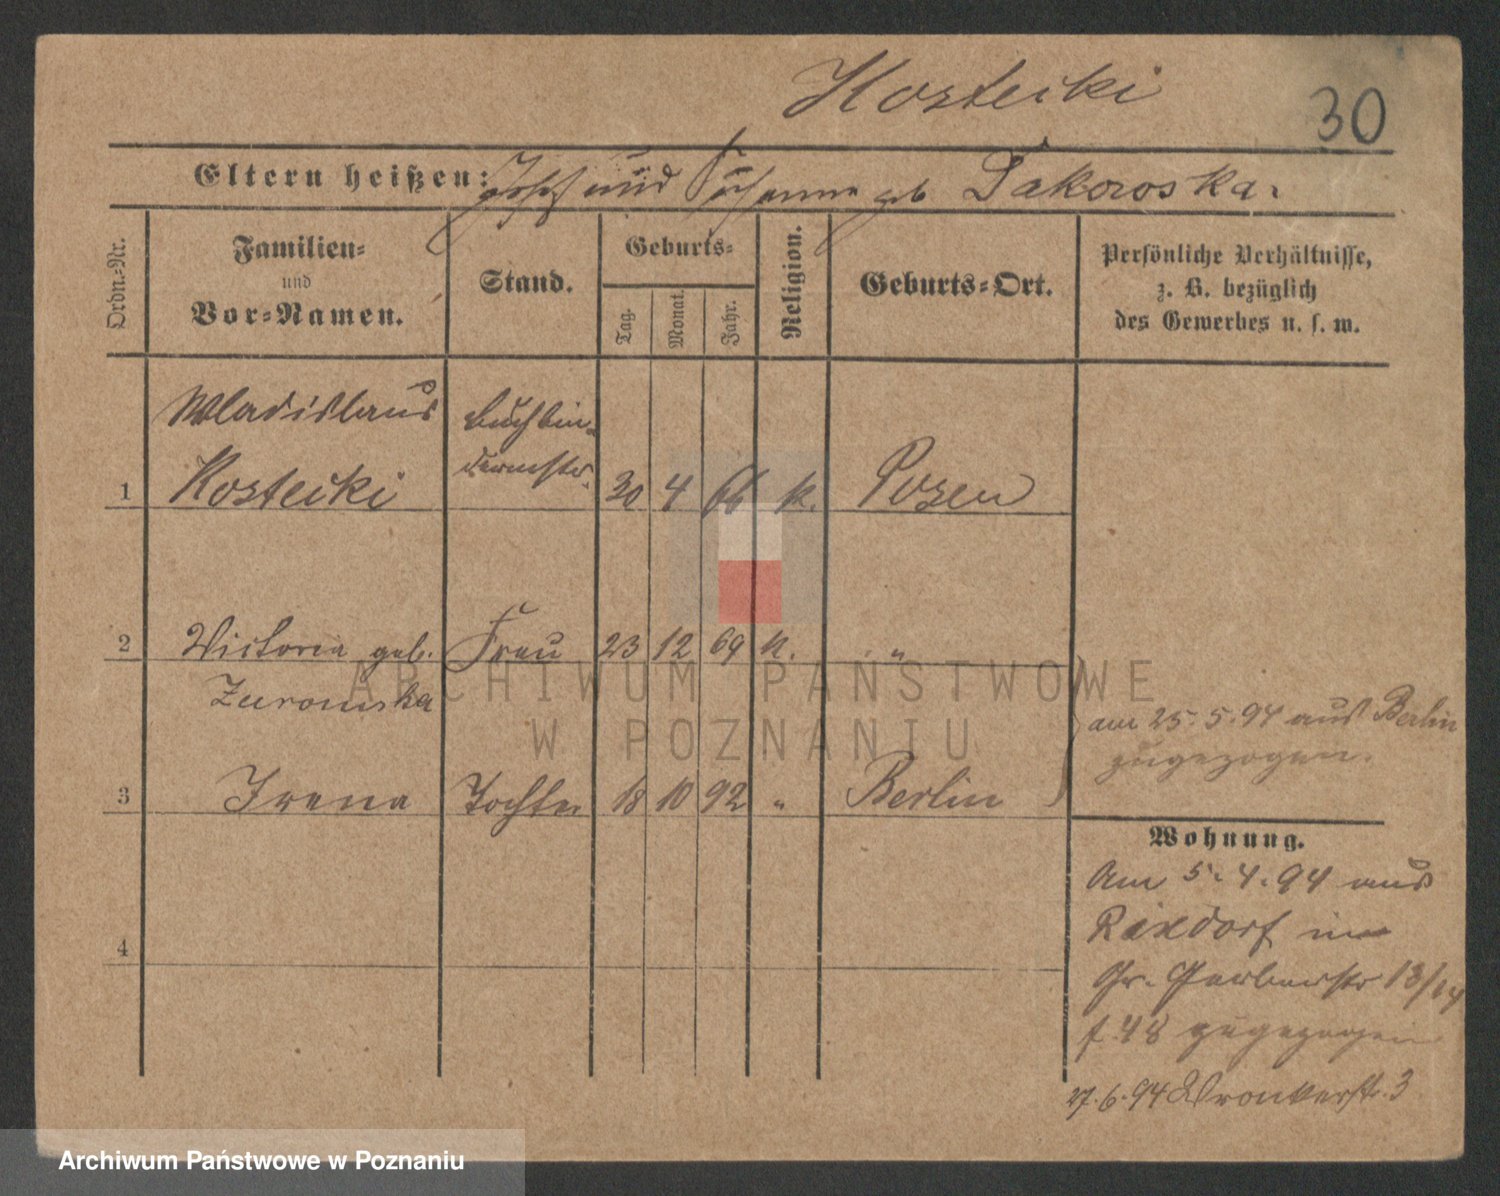 Kosteiki
30
Eltern heißen: Josef und Susanna geb Takoroska.
Ordn.-Nr.
Familien-
und
Vor-Namen.
Stand.
Geburts-
Tag.
Monat.
Jahr.
Religion.
Geburts-Ort.
Persönliche Verhältnisse,
z. B. bezüglich
des Gewerbes u. s. w.
Wladislaus
Buchbin-
dermstr.
1 Kosteiki 30 4 66 k. Posen
2 Victoria geb. Frau 23 12 69 k. "
Zuromska
am 25.5.94 aus Berlin
zugezogen.
3 Irena Tochter 18 10 92 " Berlin
Wohnung.
Am 5.4.94 aus
Rixdorf in
Gr. Gerberstr 13/14
f. 48 zugezogen
4
27.6.94 Wronkerstr. 3
ARCHIWUM PAŃSTWOWE
W POZNANIU
Archiwum Państwowe w Poznaniu